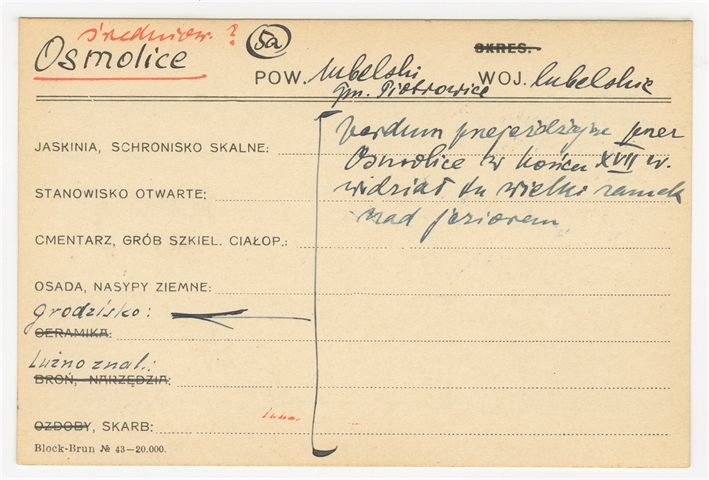 średniow. ?
Osmolice
5a
OKRES.
POW. lubelski WOJ. lubelskie
gm. Piotrowice
Verdum przejeżdżając przez
JASKINIA, SCHRONISKO SKALNE:
Osmolice w końcu XVII w.
STANOWISKO OTWARTE:
widział tu wielki zamek
nad jeziorem
CMENTARZ, GRÓB SZKIEL. CIAŁOP.:
OSADA, NASYPY ZIEMNE:
grodzisko:
CERAMIKA:
Luźno znal.:
BROŃ, NARZĘDZIA:
OZDOBY, SKARB:
Block-Brun № 43—20.000.